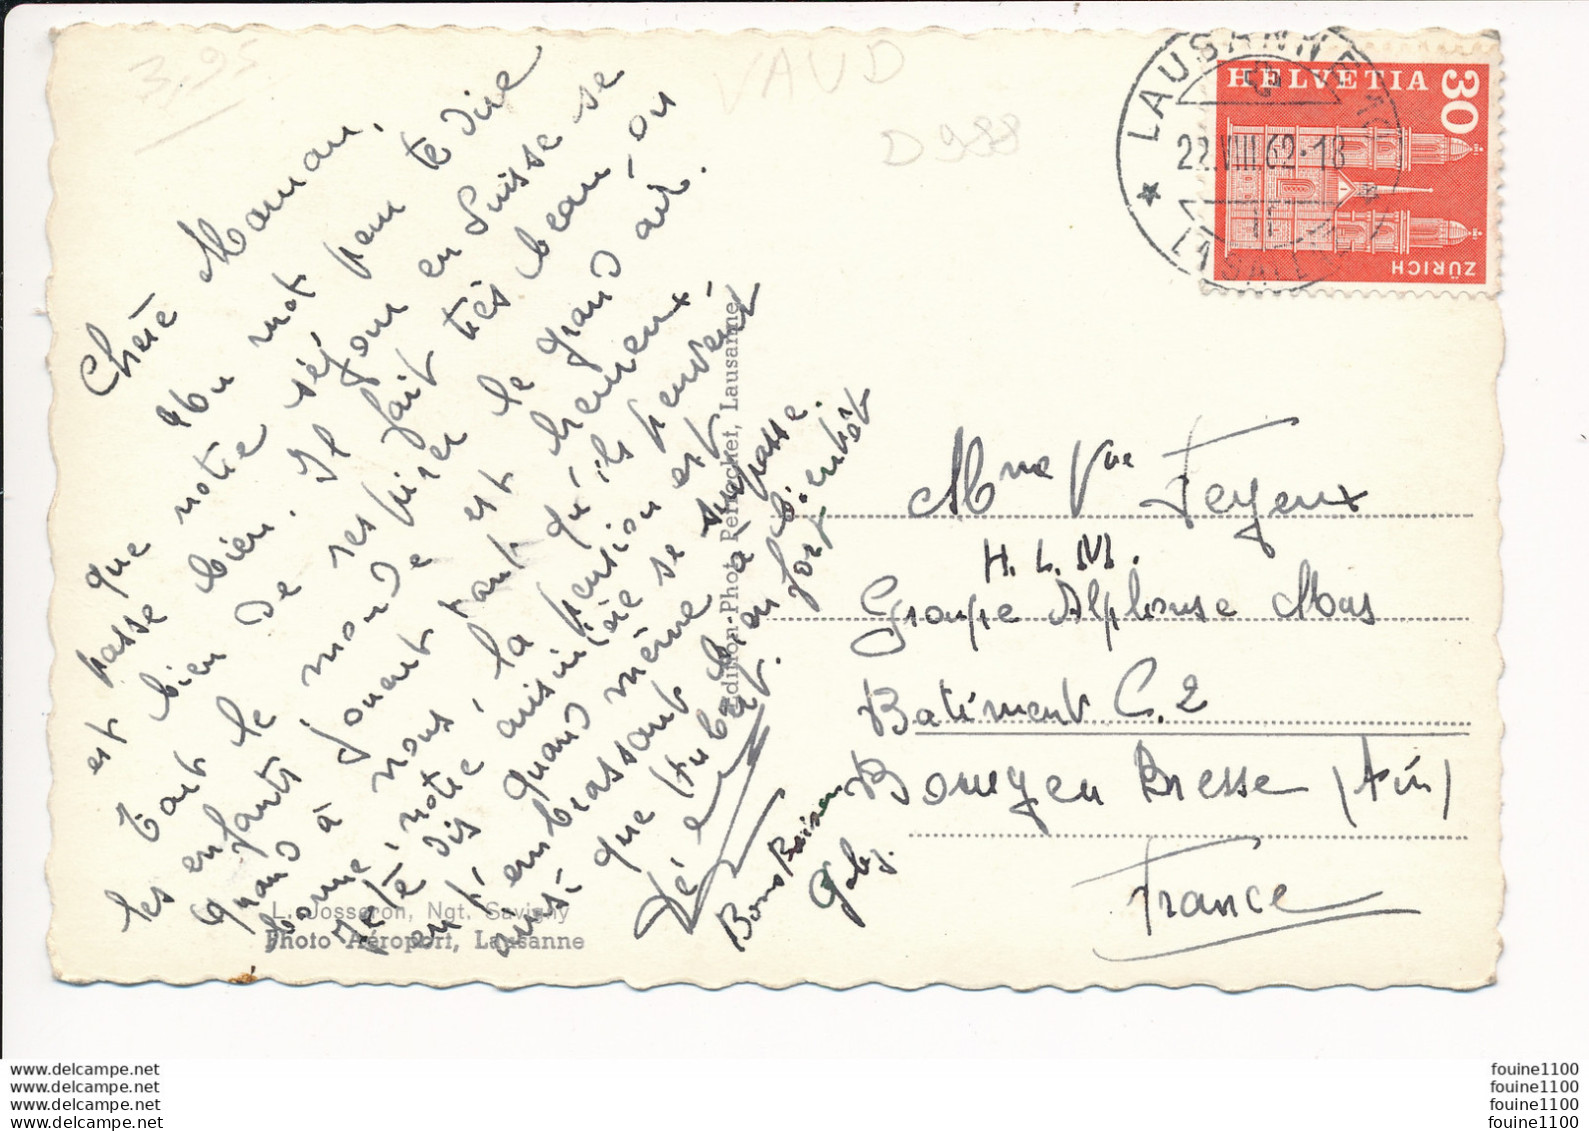 3,95
VAUD
D 988
Chère Maman,
Un mot pour te dire
que notre séjour en Suisse se
passe bien. Il fait très beau, on
est bien de respirer le grand air.
Tout le monde est heureux,
les enfants jouent tant qu'ils peuvent
Quand à nous, la pension est
bonne, notre cuisinière se surpasse.
Je te dis quand même à bientôt
en t'embrassant bien fort
ainsi que Hubert.
Bons Baisers
Gaby.
L. Josseron, Ngt. Savigny
Photo Aéroport, Lausanne
Edition-Photo Perrochet, Lausanne
LAUSANNE
22.VIII.62-18
LAUSANNE
HELVETIA
30
ZÜRICH
Mme Vve Feyeux
H.L.M.
Groupe Alphonse Mas
Batiment C.2
Bourg en Bresse (Ain)
France
www.delcampe.net
www.delcampe.net
www.delcampe.net
www.delcampe.net
fouine1100
fouine1100
fouine1100
fouine1100